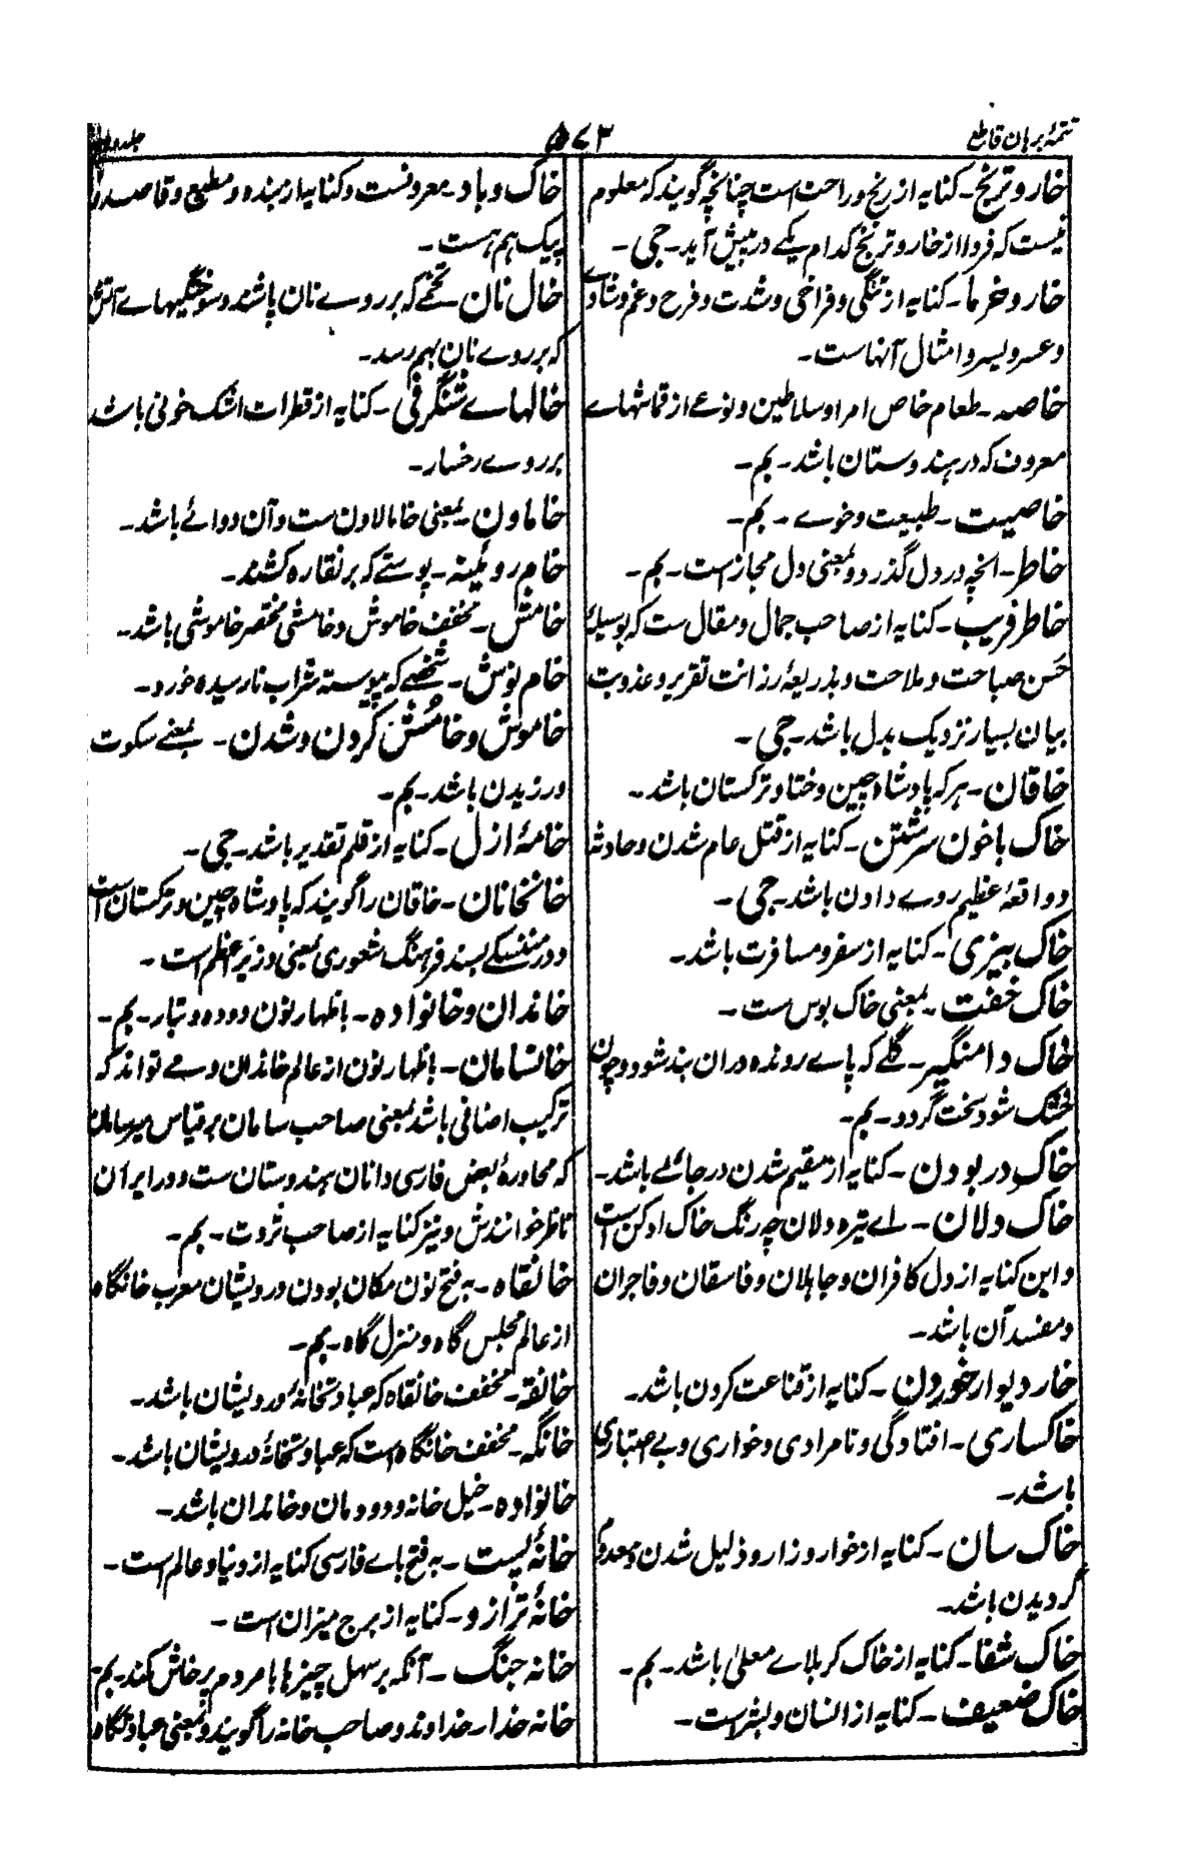 تتمهٔ برہان قاطع
۵۷۳
خار و ترنج۔ کنایه از رنج و راحت است چنانچه گویند که معلوم
نیست که فردا از خار و ترنج کدام یکے در پیش آید۔ جی۔
خار و خرما۔ کنایه از تنگی و فراخی و شدت و فرح و غم و شادے
و عسر و یسر و امثال آنهاست۔
خاصه۔ طعام خاص امرا و سلاطین و نوعے از قماشهاے
معروف که در هندوستان باشد۔ بم۔
خاصیت۔ طبیعت و خوے ۔ بم۔
خاطر۔ انچه در دل گذرد و بمعنی دل مجاز است۔ بم۔
خاطر فریب۔ کنایه از صاحب جمال و مقال ست که بوسیلهٔ
حسن صباحت و ملاحت و بذریعهٔ رزانت تقریر و عذوبت
بیان بسیار نزدیک بدل باشد۔ جی۔
خاقان۔ هر که بادشاه چین و ختا و ترکستان باشد۔
خاک با خون سرشتن۔ کنایه از قتل عام شدن و حادثه
و واقعهٔ عظیم روے دادن باشد۔ جی۔
خاک بیزی۔ کنایه از سفر و مسافرت باشد۔
خاک خفت۔ بمعنی خاک بوس ست۔
خاک دامنگیر۔ گلے که پاے رونده دران بند شود و چون
خشک شود سخت گردد۔ بم۔
خاک در بودن۔ کنایه از مقیم شدن در جائے باشد۔
خاک دلان۔ اے تیره دلان چه رنگ خاک ادکن است
و این کنایه از دل کافران و جاهلان و فاسقان و فاجران
و مفسد آن باشد۔
خار دیوار خوردن۔ کنایه از قناعت کردن باشد۔
خاکساری۔ افتادگی و نامرادی و خواری و بے اعتباری
باشد۔
خاک سان۔ کنایه از خوار و زار و ذلیل شدن و معدوم
گردیدن باشد۔
خاک شفا۔ کنایه از خاک کربلاے معلیٰ باشد۔ بم۔
خاک ضعیف۔ کنایه از انسان و بشر است۔
خاک و باد۔ معروفست و کنایه از بنده و مطیع و قاصد و
پیک هم هست۔
خال نان۔ تخمے که بر روے نان پاشند و سوختگیهاے آتش
که بر روے نان بهم رسد۔
خالهاے شنگرفی۔ کنایه از قطرات اشک خونی باشد
بر روے رخسار۔
خاماون۔ بمعنی خامالاون ست و آن دوائے باشد۔
خام روئینه۔ پوستے که بر نقاره کشند۔
خامش۔ مخفف خاموش و خامشی مختصر خاموشی باشد۔
خام نوش۔ شخصے که پیوسته شراب نارسیده خورد۔
خاموش و خامش کردن و شدن۔ بمعنے سکوت
ورزیدن باشد۔ بم۔
خامهٔ ازل۔ کنایه از قلم تقدیر باشد۔ جی۔
خانخانان۔ خاقان را گویند که پادشاه چین و ترکستان است
و در بسند فرهنگ شعوری بمعنی وزیر اعظم است۔
خاندان و خانواده۔ باظهار نون دوده و تبار۔ بم۔
خانسامان۔ باظهار نون از عالم خاندان و مے تواند که
ترکیب اضافی باشد بمعنی صاحب سامان بر قیاس میرسامان
که محاورهٔ بعض فارسی دانان هندوستان ست و در ایران
ناظر خوانندش و نیز کنایه از صاحب ثروت۔ بم۔
خانقاه۔ به فتح نون مکان بودن درویشان معرب خانگاه
از عالم مجلس گاه و منزل گاه۔ بم۔
خانقه۔ مخفف خانقاه که عبادتخانهٔ درویشان باشد۔
خانگه۔ مخفف خانگاه است که عبادتخانهٔ درویشان باشد۔
خانواده۔ خیل خانه و دودمان و خاندان باشد۔
خانهٔ پست۔ به فتح باے فارسی کنایه از دنیا و عالم است۔
خانهٔ ترازو۔ کنایه از برج میزان است۔
خانه جنگ ۔ آنکه بر سهل چیزها با مردم پرخاش کند۔ بم۔
خانه خدا۔ خداوند و صاحب خانه را گویند و بمعنی عبادتگاه